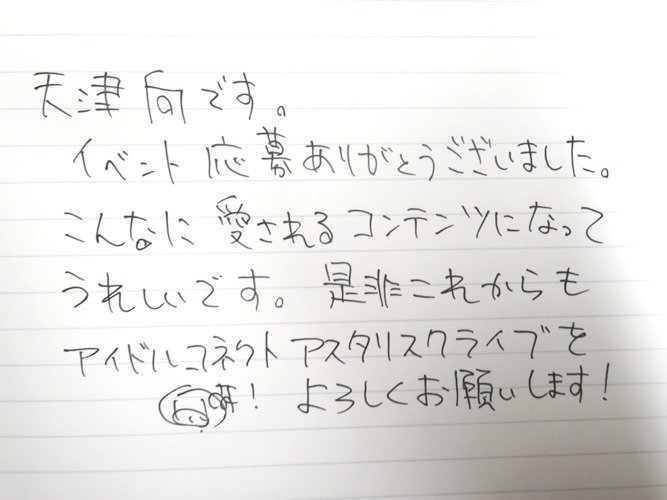 天津向です。
イベント応募ありがとうございました。
こんなに愛されるコンテンツになって
うれしいです。是非これからも
アイドルコネクトアスタリスクライブを
! よろしくお願いします!